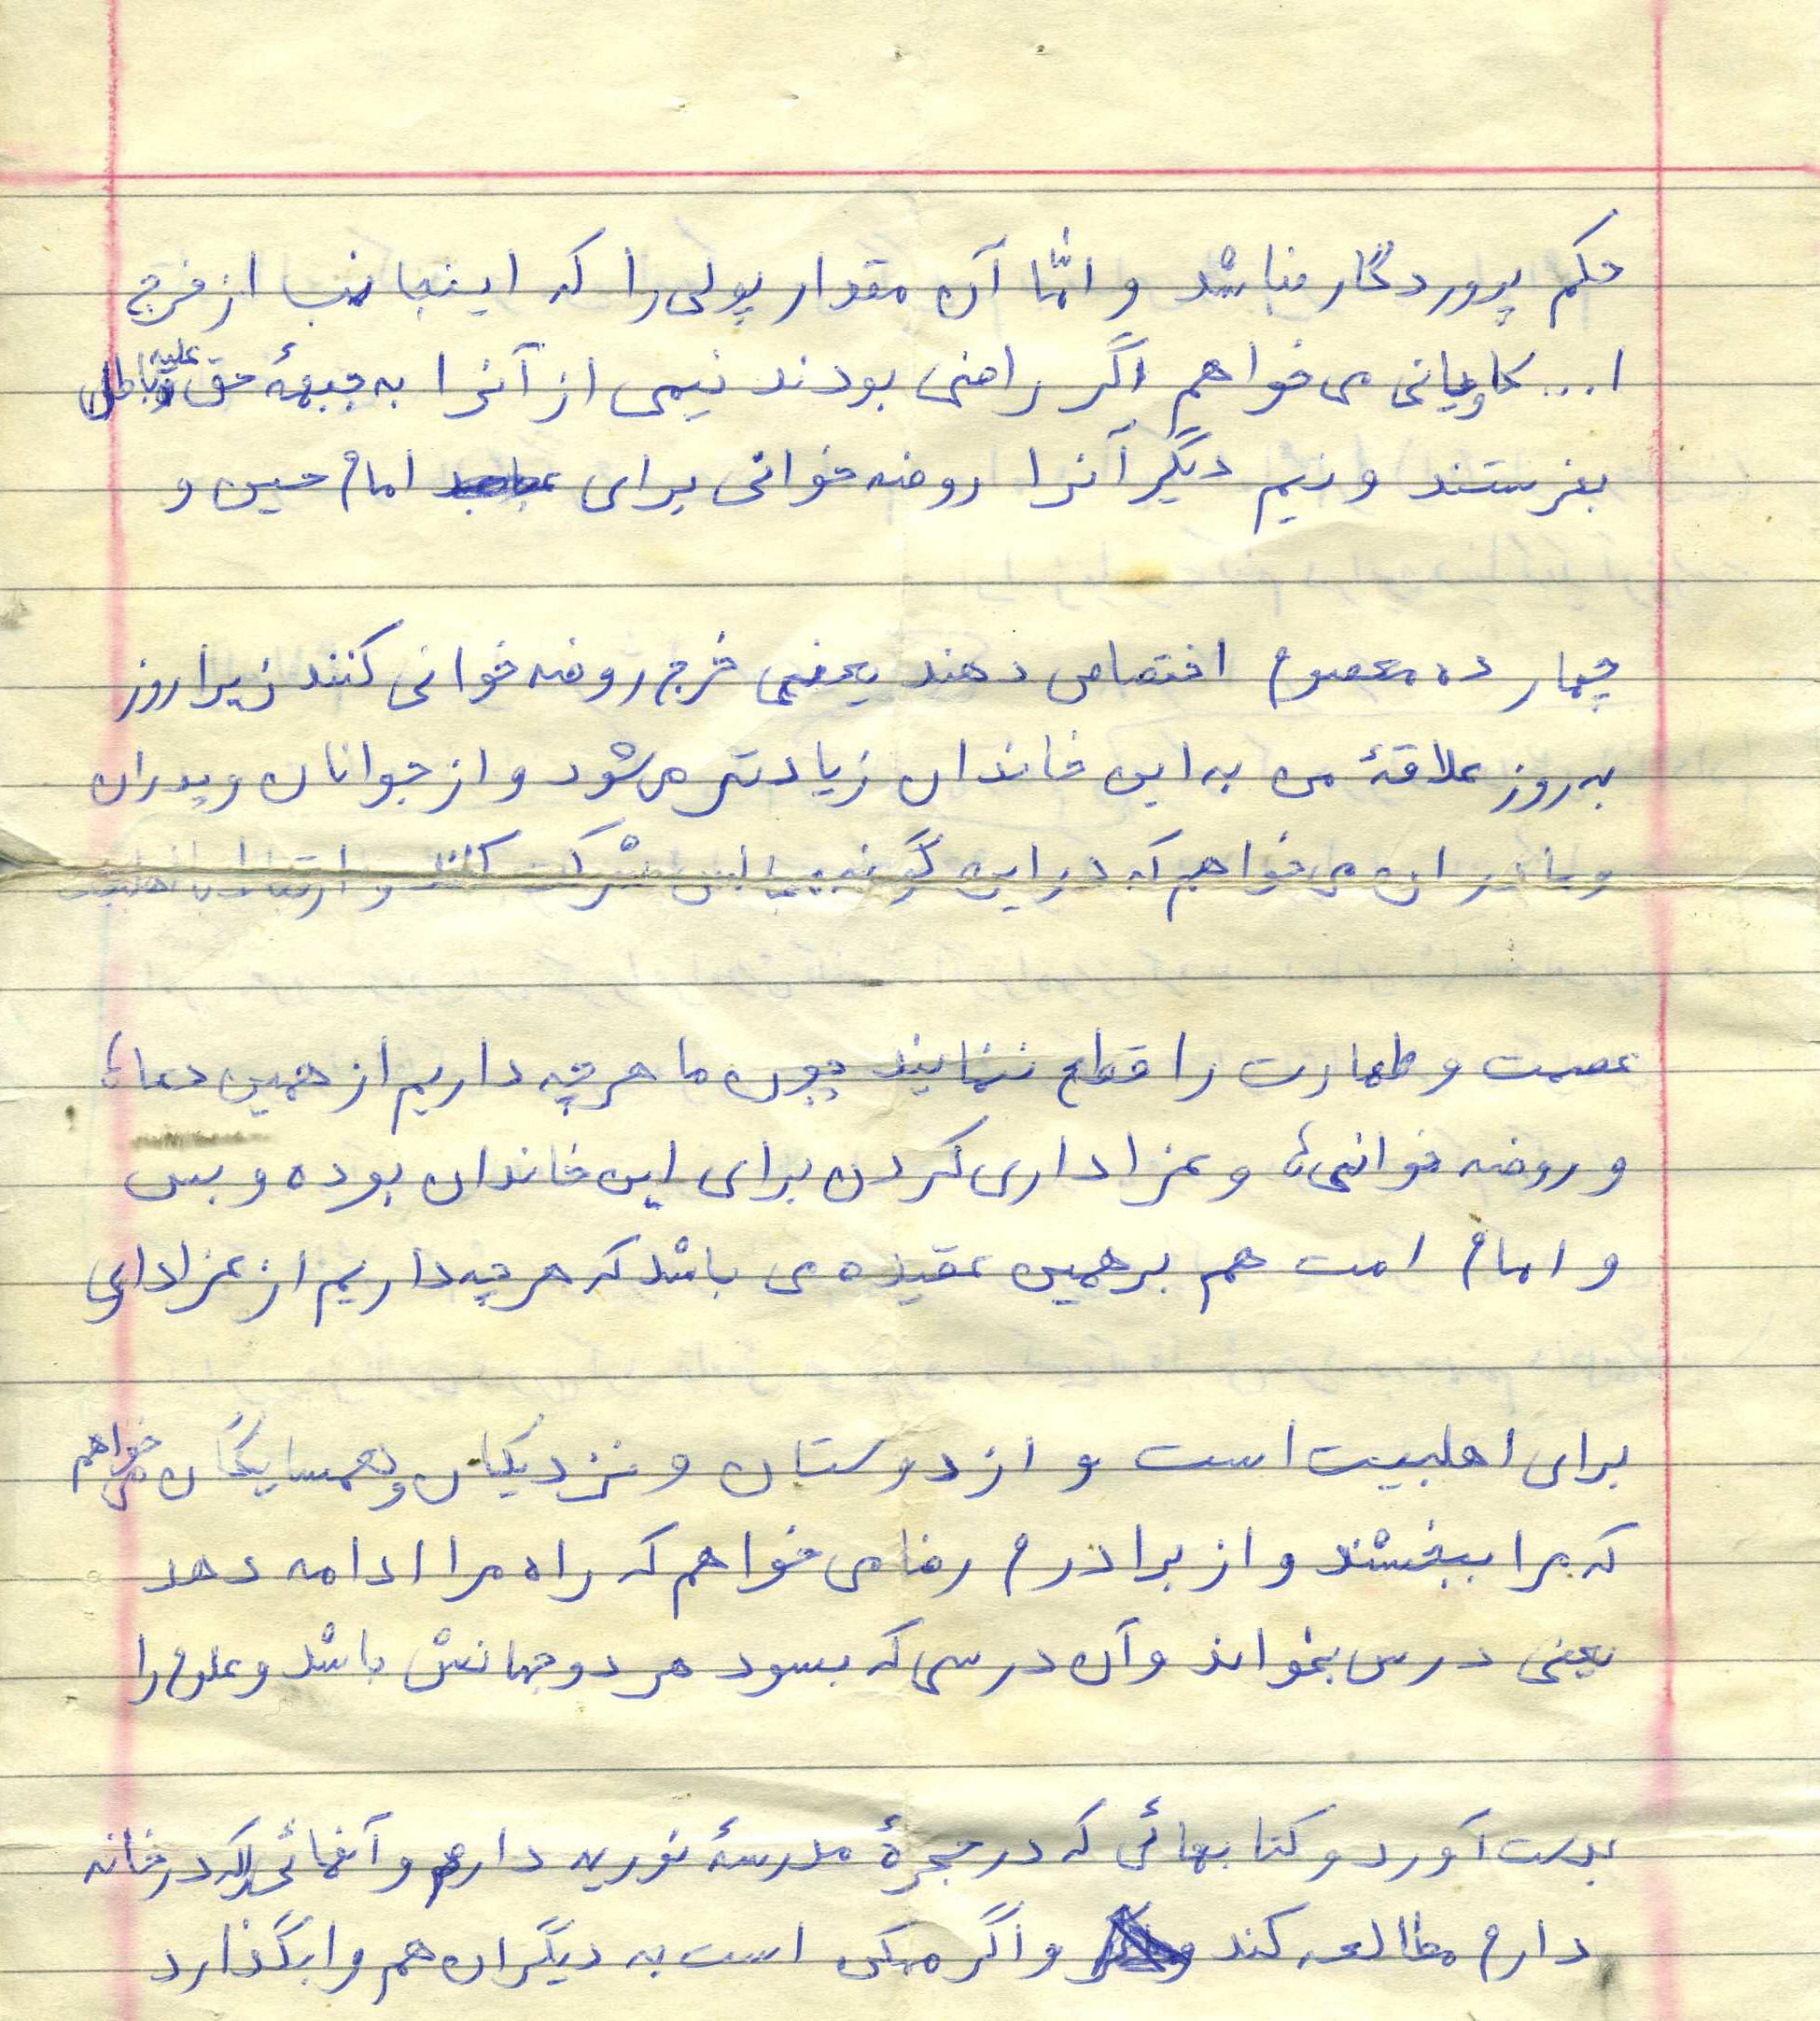 حکم پروردگار مناشد و امّا آن مقدار پولی را که اینجانب از فرج
ا... کاویانی می خواهم اگر راضی بودند نیمی از آنرا به جبههٔ حق علیه باطل
بفرستند و نیم دیگر آنرا روضه خوانی برای امام حسین و
چهارده معصوم اختصاص دهند یعنی خرج روضه خوانی کنند زیرا روز
به روز علاقهٔ من به این خاندان زیادتر می شود و از جوانان و پدران
و مادران می خواهم که در این گونه مجالس شرکت کنند و ارتباط با اهلبیت
عصمت و طهارت را قطع ننمایند چون ما هر چه داریم از همین دعاها
و روضه خوانی ها و عزاداری کردن برای این خاندان بوده و بس
و امام امت هم بر همین عقیده می باشد که هر چه داریم از عزاداری
برای اهلبیت است و از دوستان و نزدیکان و همسایگان می خواهم
که مرا ببخشند و از برادرم رضا می خواهم که راه مرا ادامه دهد
یعنی درس بخواند و آن درسی که بسود هر دو جهانش باشد و علوم را
بدست آورد و کتابهائی که در حجرهٔ مدرسهٔ نوریه دارم و آنهائی را که در خانه
دارم مطالعه کند و اگر ممکن است به دیگران هم وابگذارد